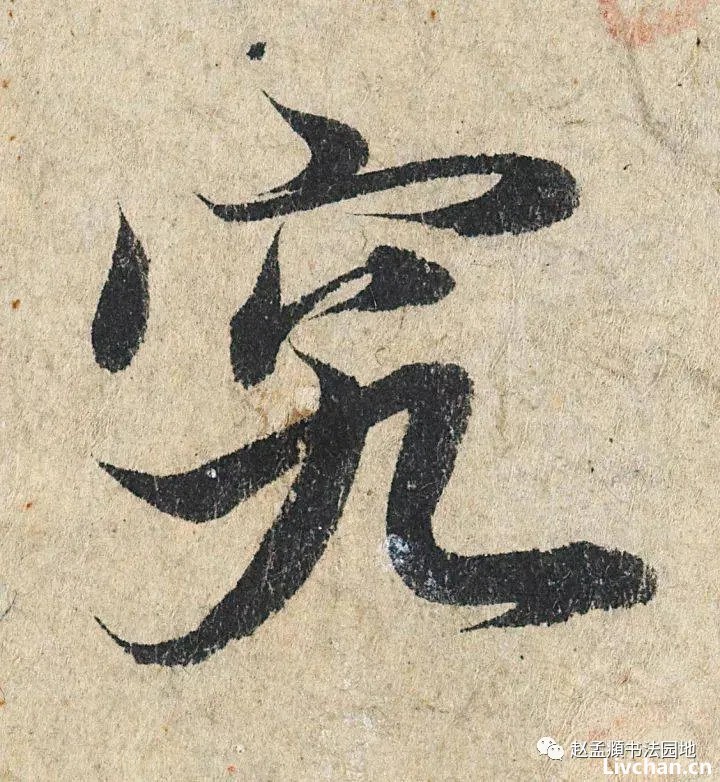 究
赵孟頫书法园地
Livchan.cn